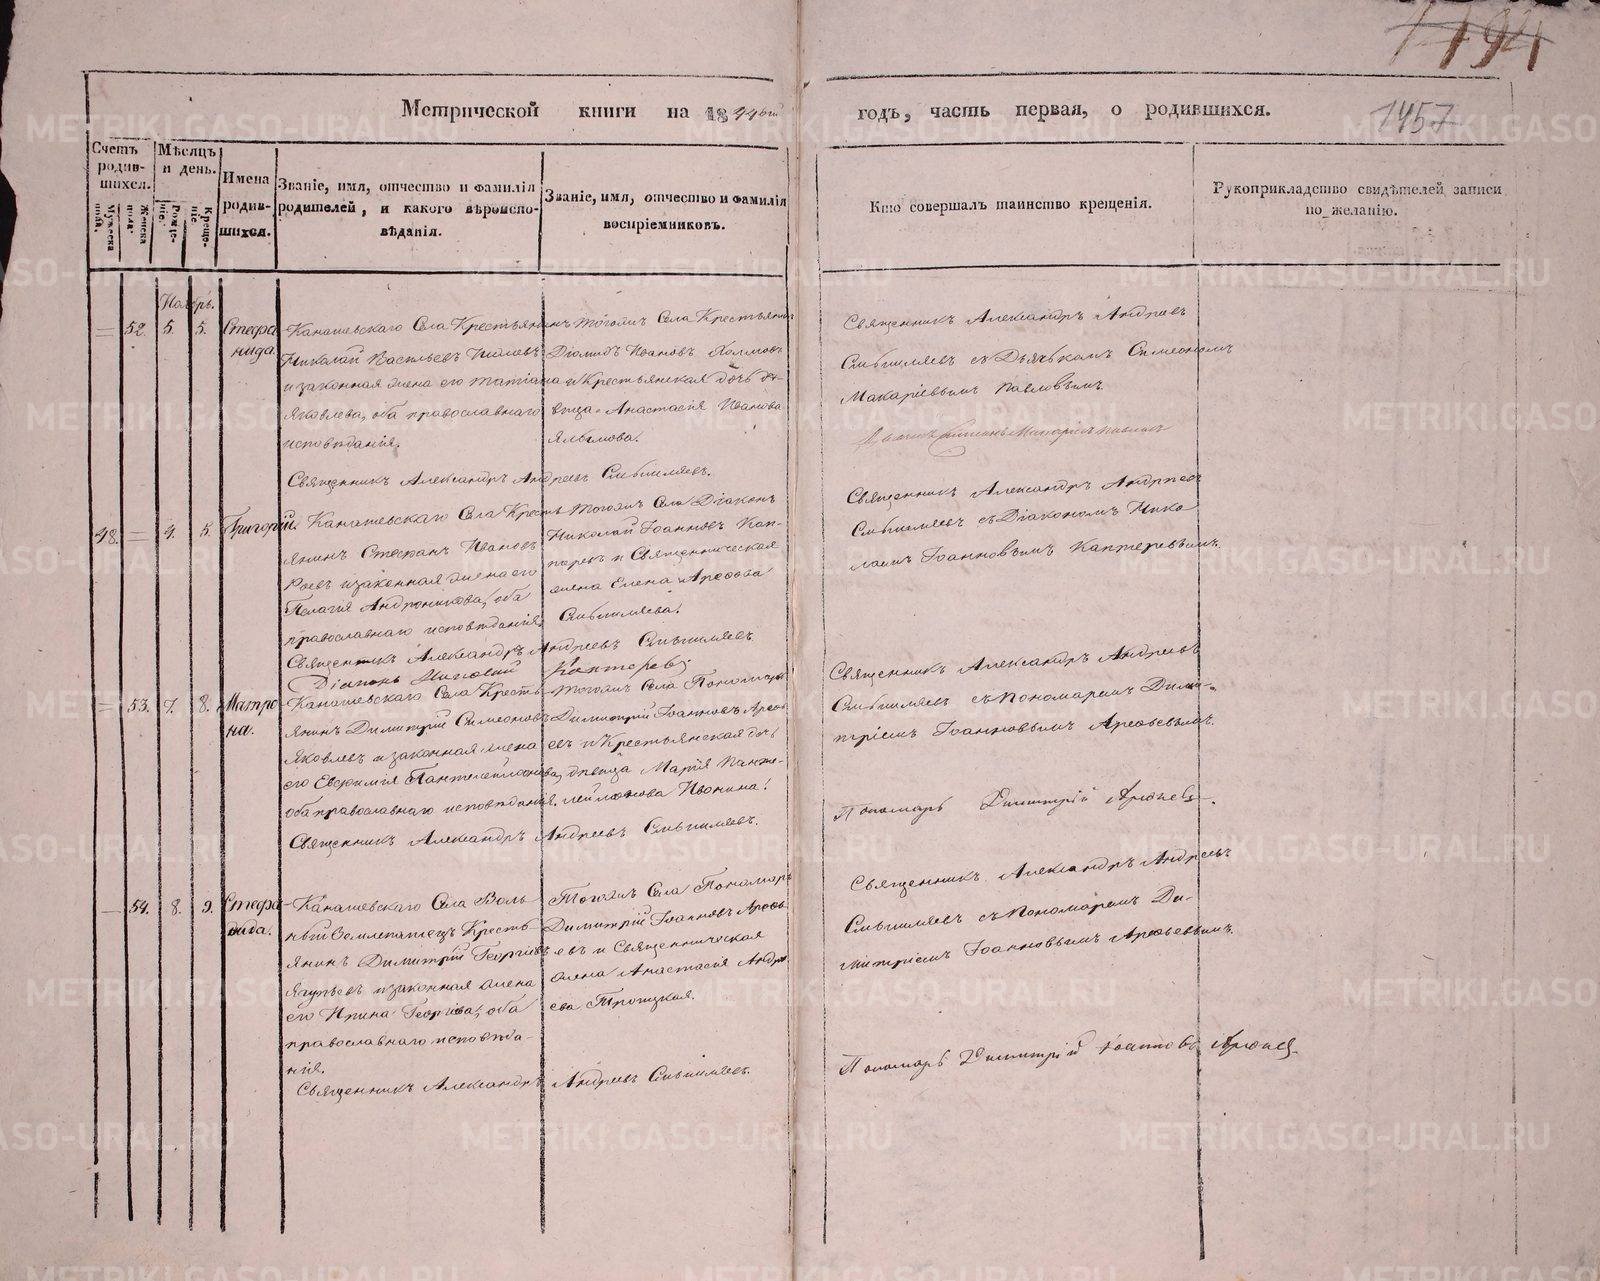 1457
Метрической книги на 1844ый годъ, часть первая, о родившихся.
Счетъ родившихся.
Мужеска пола.
Женска пола.
Мѣсяцъ и день.
Рожденіе.
Крещеніе.
Имена родившихся.
Званіе, имя, отчество и фамилія родителей, и какого вѣроисповѣданія.
Званіе, имя, отчество и фамилія воспріемниковъ.
Кто совершалъ таинство крещенія.
Рукоприкладство свидѣтелей записи по желанію.
Ноябрь.
52. 5. 5.
Стефанида.
Канашевскаго Села Крестьянинъ
Николай Васильевъ
и законная жена его Татіана
Яковлева, оба православнаго
исповѣданія.
Тогожъ Села Крестьянинъ
Діомидъ Ивановъ
и Крестьянская дочь дѣ-
вица Анастасія Иванова
Священникъ Александръ Андреевъ
съ Дьячькомъ Симеономъ
Макаріевымъ Павловымъ.
Священникъ Александръ Андреевъ
48. 4. 5.
Григорій.
Канашевскаго Села Кресть-
янинъ Стефанъ Ивановъ
и законная жена его
Пелагія Андроникова, оба
православнаго исповѣданія.
Тогожъ Села Діаконъ
Николай Іоанновъ Кап-
теревъ и Священническая
жена Елена
Священникъ Александръ Андреевъ
съ Діакономъ Нико-
лаемъ Іоанновымъ Каптеревымъ.
Священникъ Александръ Андреевъ
Діаконъ Николай Каптеревъ
53. 7. 8.
Матрона.
Канашевскаго Села Кресть-
янинъ Димитрій Симеоновъ
Яковлевъ и законная жена
его Евфимія Пантелеймонова,
оба православнаго исповѣданія.
Тогожъ Села Пономарь
Димитрій Іоанновъ Арефь-
евъ и Крестьянская дочь
дѣвица Марія Панте-
леймонова Ивонина.
Священникъ Александръ Андреевъ
съ Пономаремъ Дими-
тріемъ Іоанновымъ Арефьевымъ.
Пономарь Димитрій Арефьевъ.
Священникъ Александръ Андреевъ
54. 8. 9.
Стефанида.
Канашевскаго Села Воль-
ный Землепашецъ Кресть-
янинъ Димитрій Георгіевъ
Ягупьевъ и законная жена
его Ирина Георгіева, оба
православнаго исповѣда-
нія.
Тогожъ Села Пономарь
Димитрій Іоанновъ Арефь-
евъ и Священническая
жена Анастасія Андре-
ева Троицкая.
Священникъ Александръ Андреевъ
съ Пономаремъ Ди-
митріемъ Іоанновымъ Арефьевымъ.
Пономарь Димитрій Іоанновъ Арефьевъ
Священникъ Александръ Андреевъ
METRIKI.GASO-URAL.RU